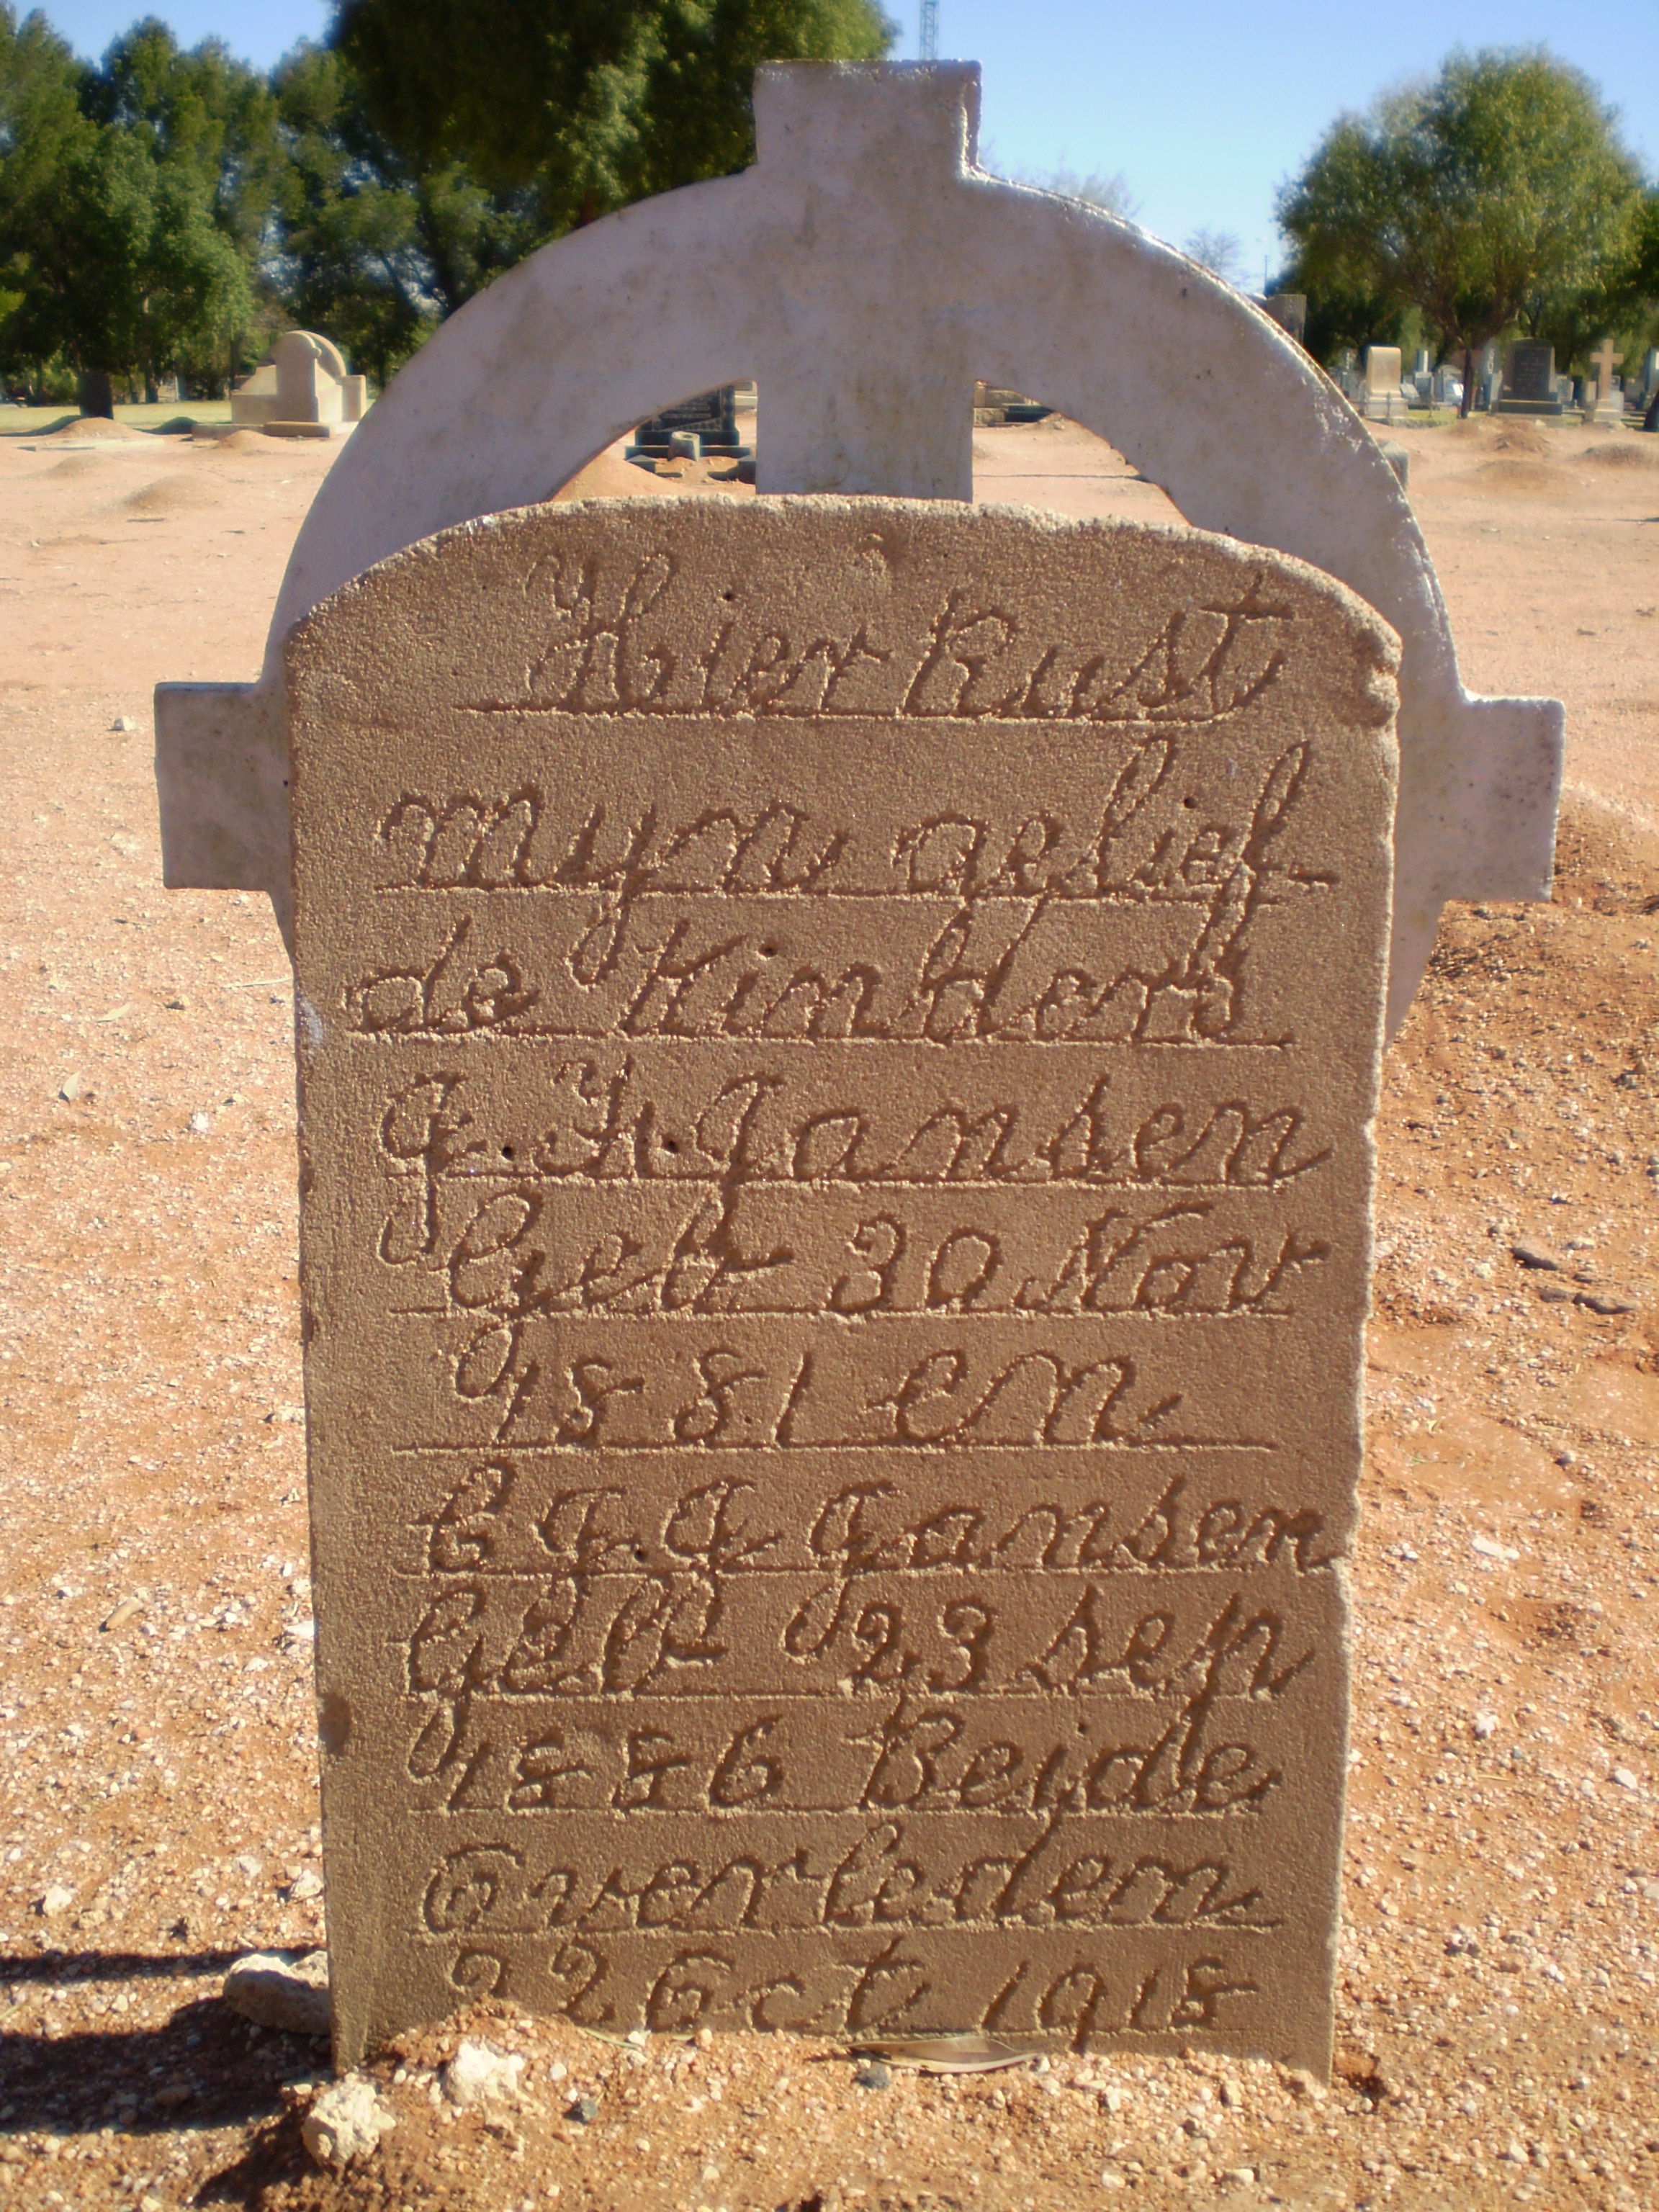 Hier Rust
myn gelief-
de Kinders
J. H. Jansen
Geb 30 Nov
1881 en
C J. J Jansen
Geb 23 sep
1886 Beide
Overleden
22 Oct 1918